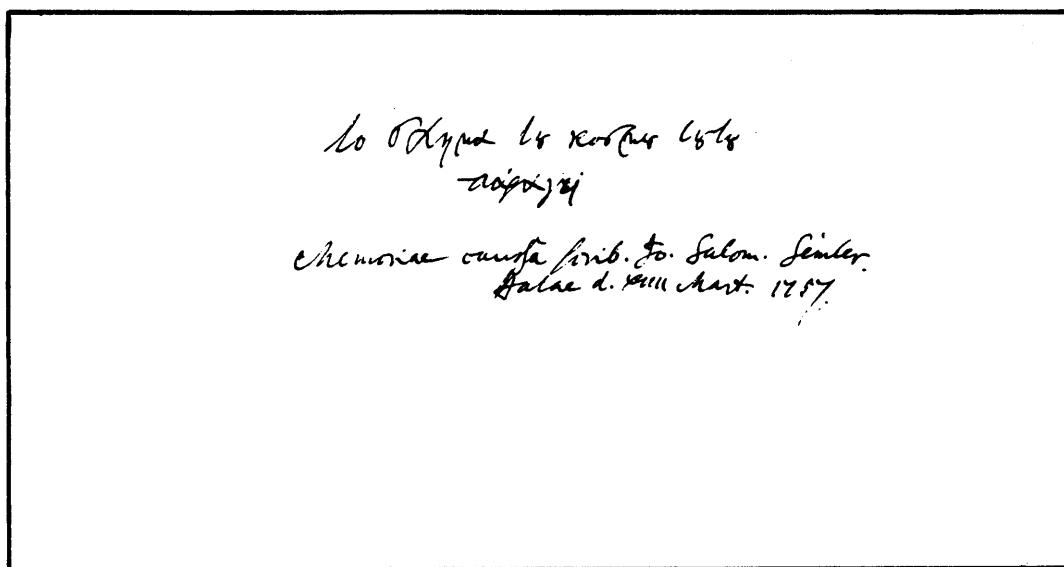 το σχημα τȣ κοσμȣ τȣτȣ
παράγει
Memoriae caussa scrib. Jo. Salom. Semler.
Halae d. XIIII Mart. 1757.